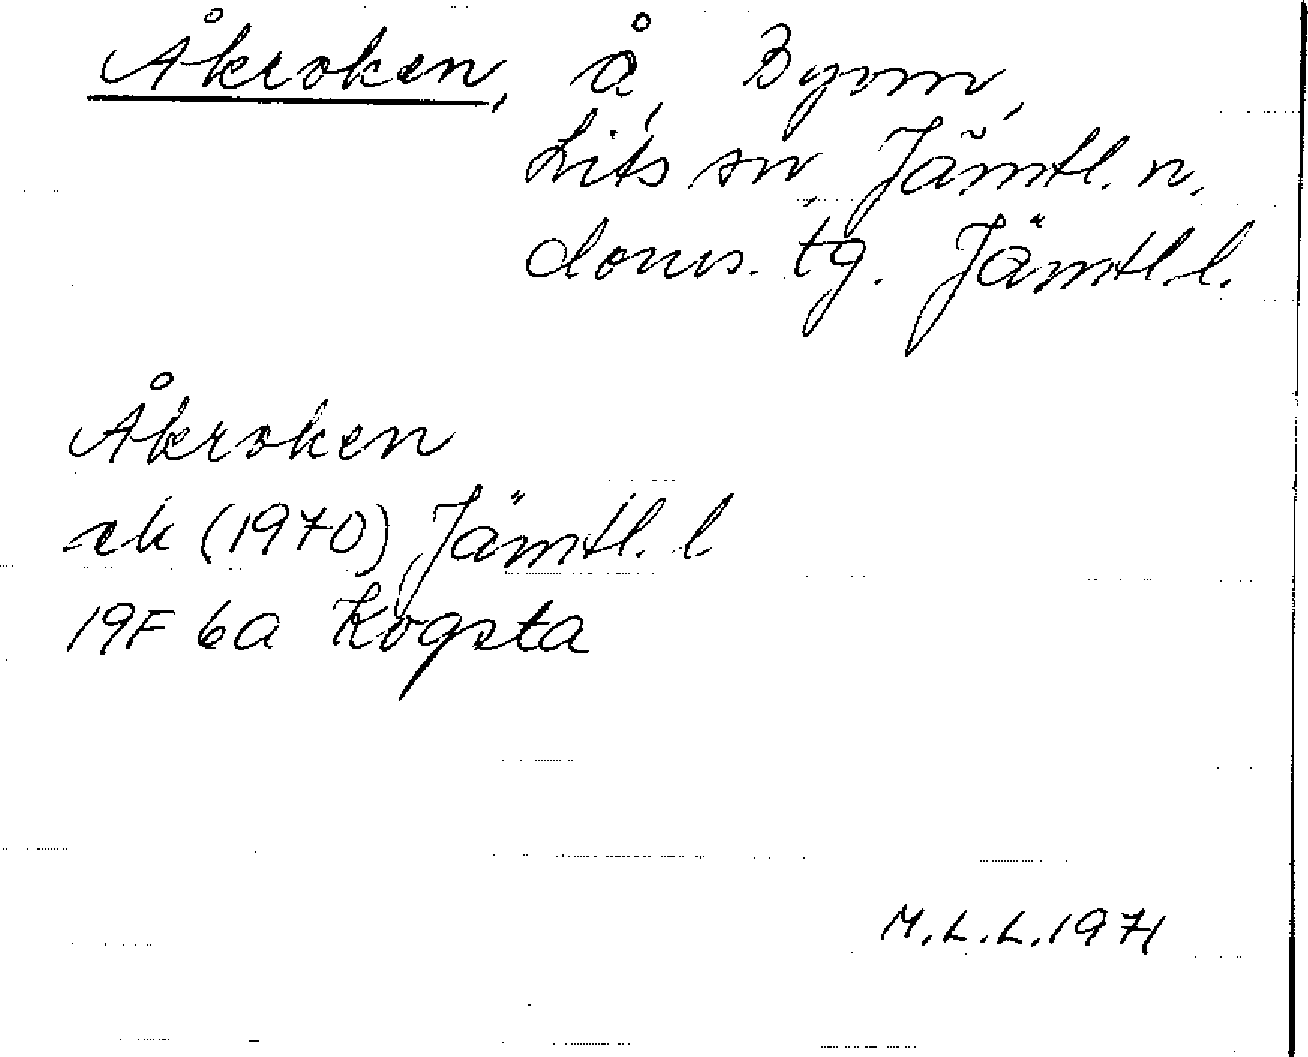 Åkroken, å, Byom,
Lits sn, Jämtl. n.
doms. tg. Jämtl. l.
Åkroken
ek (1970) Jämtl. l
19F 6a Kogsta
M.L.L. 1971